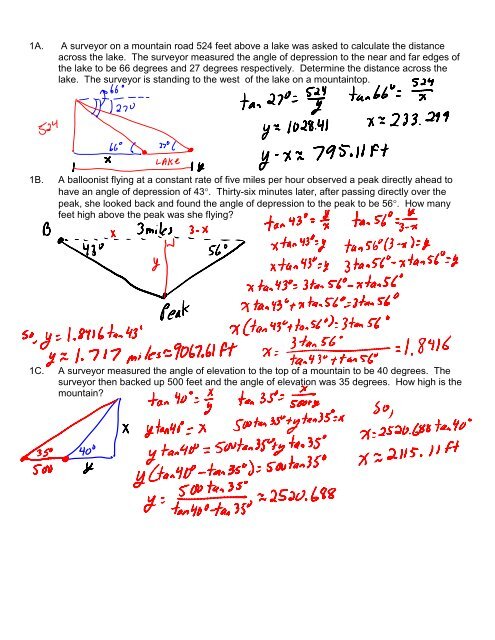 1A. A surveyor on a mountain road 524 feet above a lake was asked to calculate the distance
across the lake. The surveyor measured the angle of depression to the near and far edges of
the lake to be 66 degrees and 27 degrees respectively. Determine the distance across the
lake. The surveyor is standing to the west of the lake on a mountaintop.
66°
27°
524
66°
27°
x
LAKE
y
tan 27° = 524/y
tan 66° = 524/x
y ≈ 1028.41
x ≈ 233.299
y - x ≈ 795.11 ft
1B. A balloonist flying at a constant rate of five miles per hour observed a peak directly ahead to
have an angle of depression of 43°. Thirty-six minutes later, after passing directly over the
peak, she looked back and found the angle of depression to the peak to be 56°. How many
feet high above the peak was she flying?
B
x
3 miles
3-x
43°
56°
y
Peak
tan 43° = y/x
tan 56° = y/3-x
x tan 43° = y
tan 56° (3-x) = y
x tan 43° = y
3 tan 56° - x tan 56° = y
x tan 43° = 3 tan 56° - x tan 56°
x tan 43° + x tan 56° = 3 tan 56°
x (tan 43° + tan 56°) = 3 tan 56°
x = 3 tan 56° / tan 43° + tan 56° = 1.8416
So, y = 1.8416 tan 43°
y ≈ 1.717 miles ≈ 9067.61 ft
1C. A surveyor measured the angle of elevation to the top of a mountain to be 40 degrees. The
surveyor then backed up 500 feet and the angle of elevation was 35 degrees. How high is the
mountain?
x
35°
40°
500
y
tan 40° = x/y
tan 35° = x/500+y
y tan 40° = x
500 tan 35° + y tan 35° = x
y tan 40° = 500 tan 35° + y tan 35°
y (tan 40° - tan 35°) = 500 tan 35°
y = 500 tan 35° / tan 40° - tan 35° ≈ 2520.688
So,
x = 2520.688 tan 40°
x ≈ 2115.11 ft